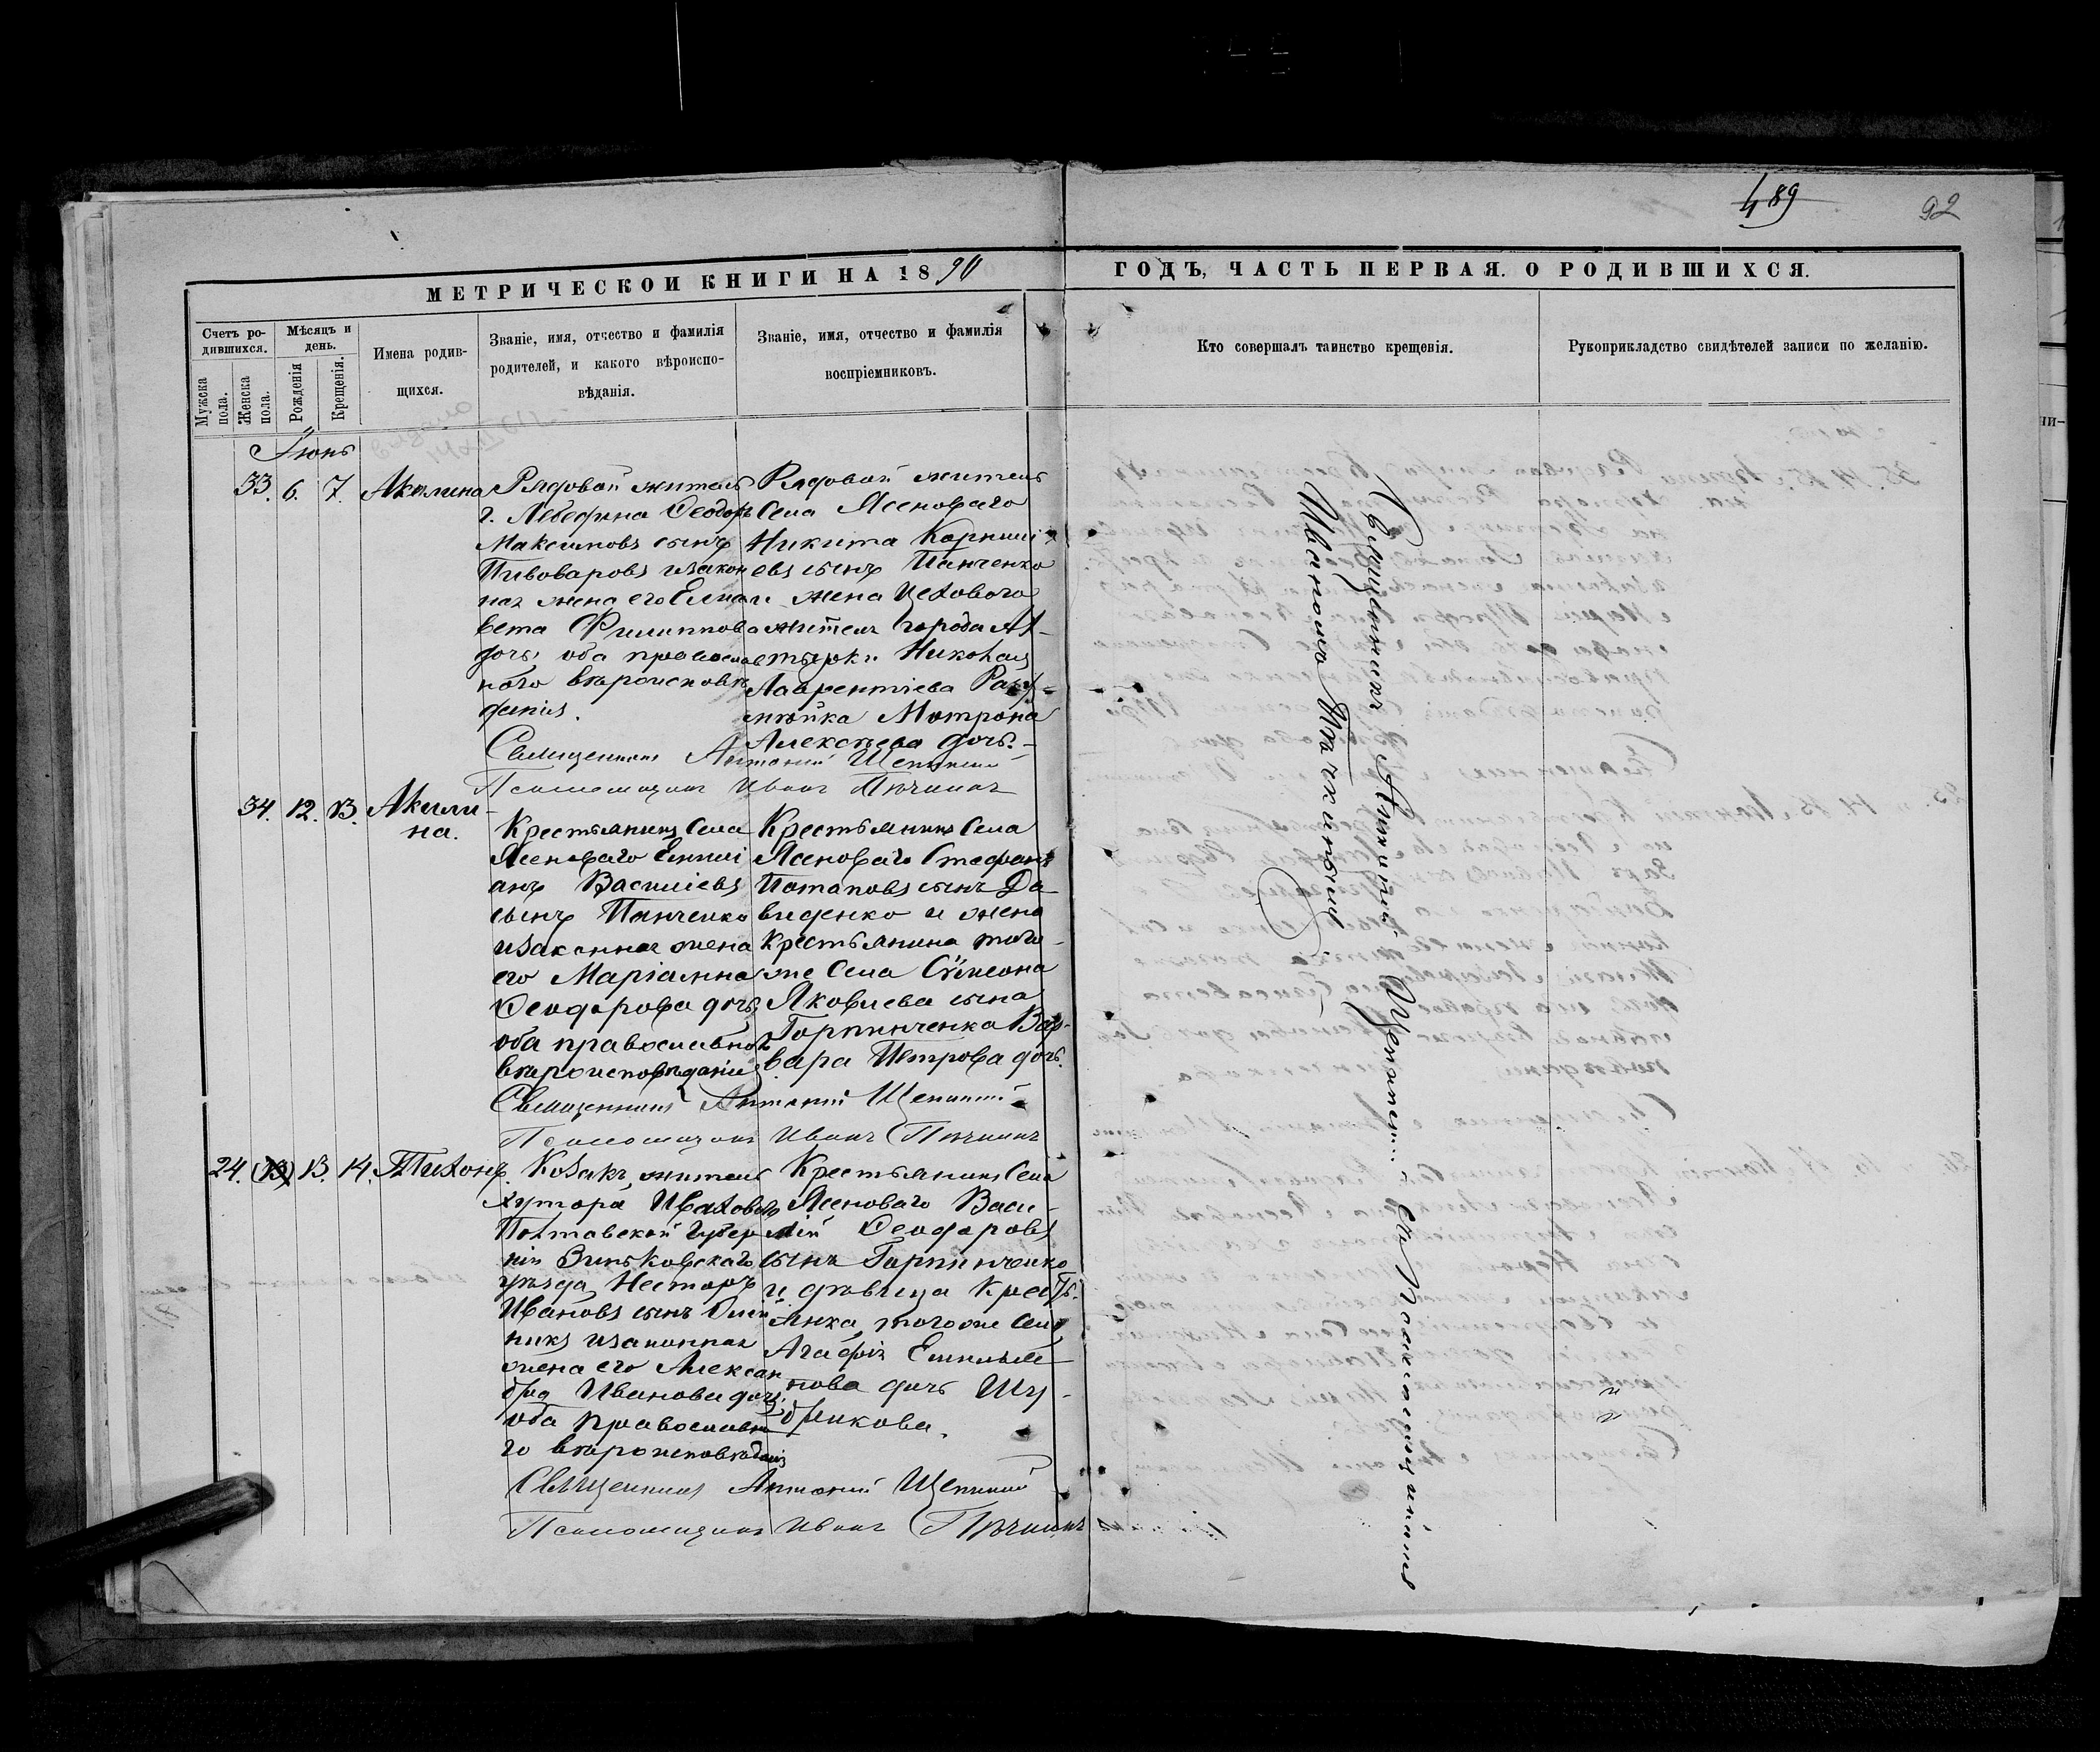 489
92
МЕТРИЧЕСКОЙ КНИГИ НА 1890
ГОДЪ, ЧАСТЬ ПЕРВАЯ. О РОДИВШИХСЯ.
Счетъ ро-
дившихся.
Мужска
пола.
Женска
пола.
Мѣсяцъ и
день.
Рожденія
Крещенія.
Имена родив-
шихся.
Званіе, имя, отчество и фамилія
родителей, и какого вѣроиспо-
вѣданія.
Званіе, имя, отчество и фамилія
воспріемниковъ.
Кто совершалъ таинство крещенія.
Рукоприкладство свидѣтелей записи по желанію.
Іюнь
33. 6. 7. Акилина
Рядовой житель
г. Лебедина Ѳеодоръ
Максимовъ сынъ
Пивоваровъ и закон
ная жена его Елиса
вета Филиппова
дочь оба православ
наго вѣроисповѣ
данія.
Рядовой житель
села Ясеноваго
Никита Корнилі
евъ сынъ Панченко
и жена Цехового
жителя города Ах-
тырки Николая
Лаврентіева
Мотрона
Алексѣева дочь.
Священникъ Антоній
Псаломщикъ Иванъ
34. 12. 13. Акили
на.
Крестьянинъ села
Ясеноваго Емилі
анъ Василіевъ
сынъ Панченко
и законная жена
его Маріанна
Ѳеодорова дочь
оба православнаго
вѣроисповѣданія
Крестьянинъ села
Ясеноваго Стефанъ
Потаповъ сынъ Да-
виденко и жена
крестьянина того-
же села Сумеона
Яковлева сына
Горпинченка Вар-
вара Петрова дочь.
Священникъ Антоній
Псаломщикъ Иванъ
24. 13. 14. Тихонъ.
Козакъ, житель
хутора
Полтавской губер
ніи Зиньковскаго
уѣзда, Несторъ
Ивановъ сынъ Олей
никъ и законная
жена его Алексан
дра Иванова дочь.
оба православна
го вѣроисповѣданія
Крестьянинъ села
Ясеноваго Васи-
лій Ѳеодоровъ
сынъ Горпинченко
и дѣвица крестьь.
янка того же села
Агафія Емилья
нова дочь Шу-
брикова.
Священникъ Антоній
Псаломщикъ Иванъ
Священникъ Антоній
съ Псаломщикомъ
Иваномъ